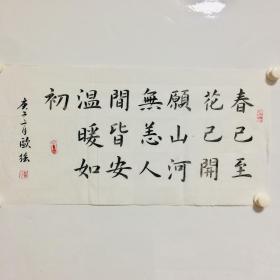 春已至
花已開
願山河
無恙人
間皆安
温暖如
初
庚子二月歐強